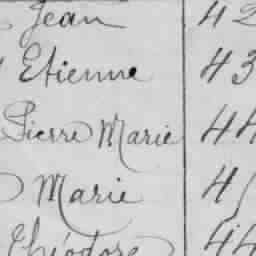 Jean 42
Etienne 43
Pierre Marie 44
Marie 45
Théodore 44